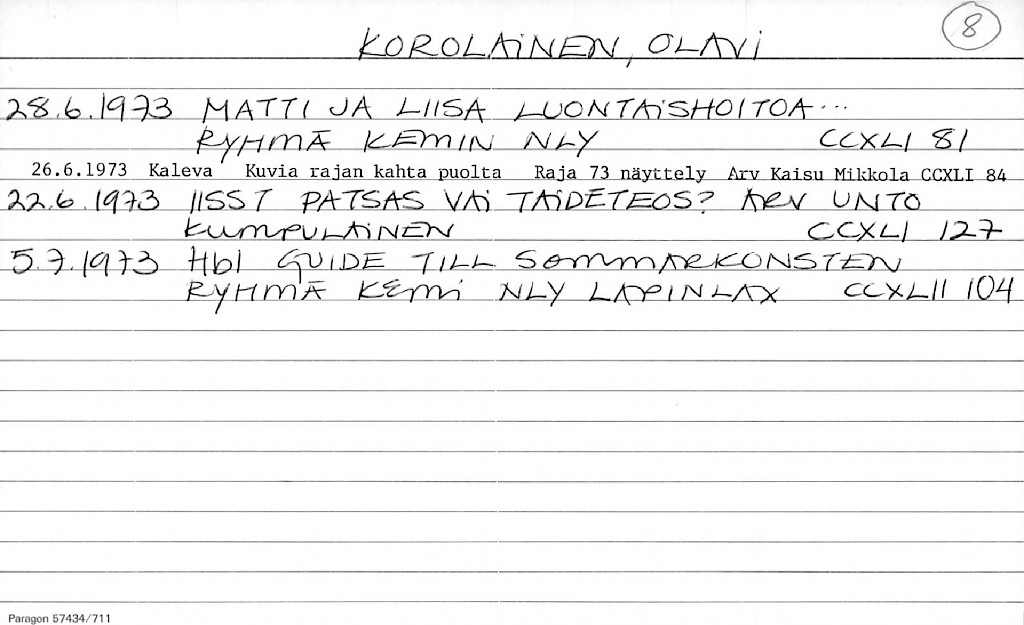 8
KOROLAINEN, OLAVI
28.6.1973 MATTI JA LIISA LUONTAISHOITOA...
RYHMÄ KEMIN NLY CCXLI 81
26.6.1973 Kaleva Kuvia rajan kahta puolta Raja 73 näyttely Arv Kaisu Mikkola CCXLI 84
22.6.1973 IISST PATSAS VAI TAIDETEOS? ARV UNTO
KUMPULAINEN CCXLI 127
5.7.1973 Hbl GUIDE TILL SOMMARKONSTEN
RYHMÄ KEMI NLY LAPINLAX CCXLII 104
Paragon 57434/711